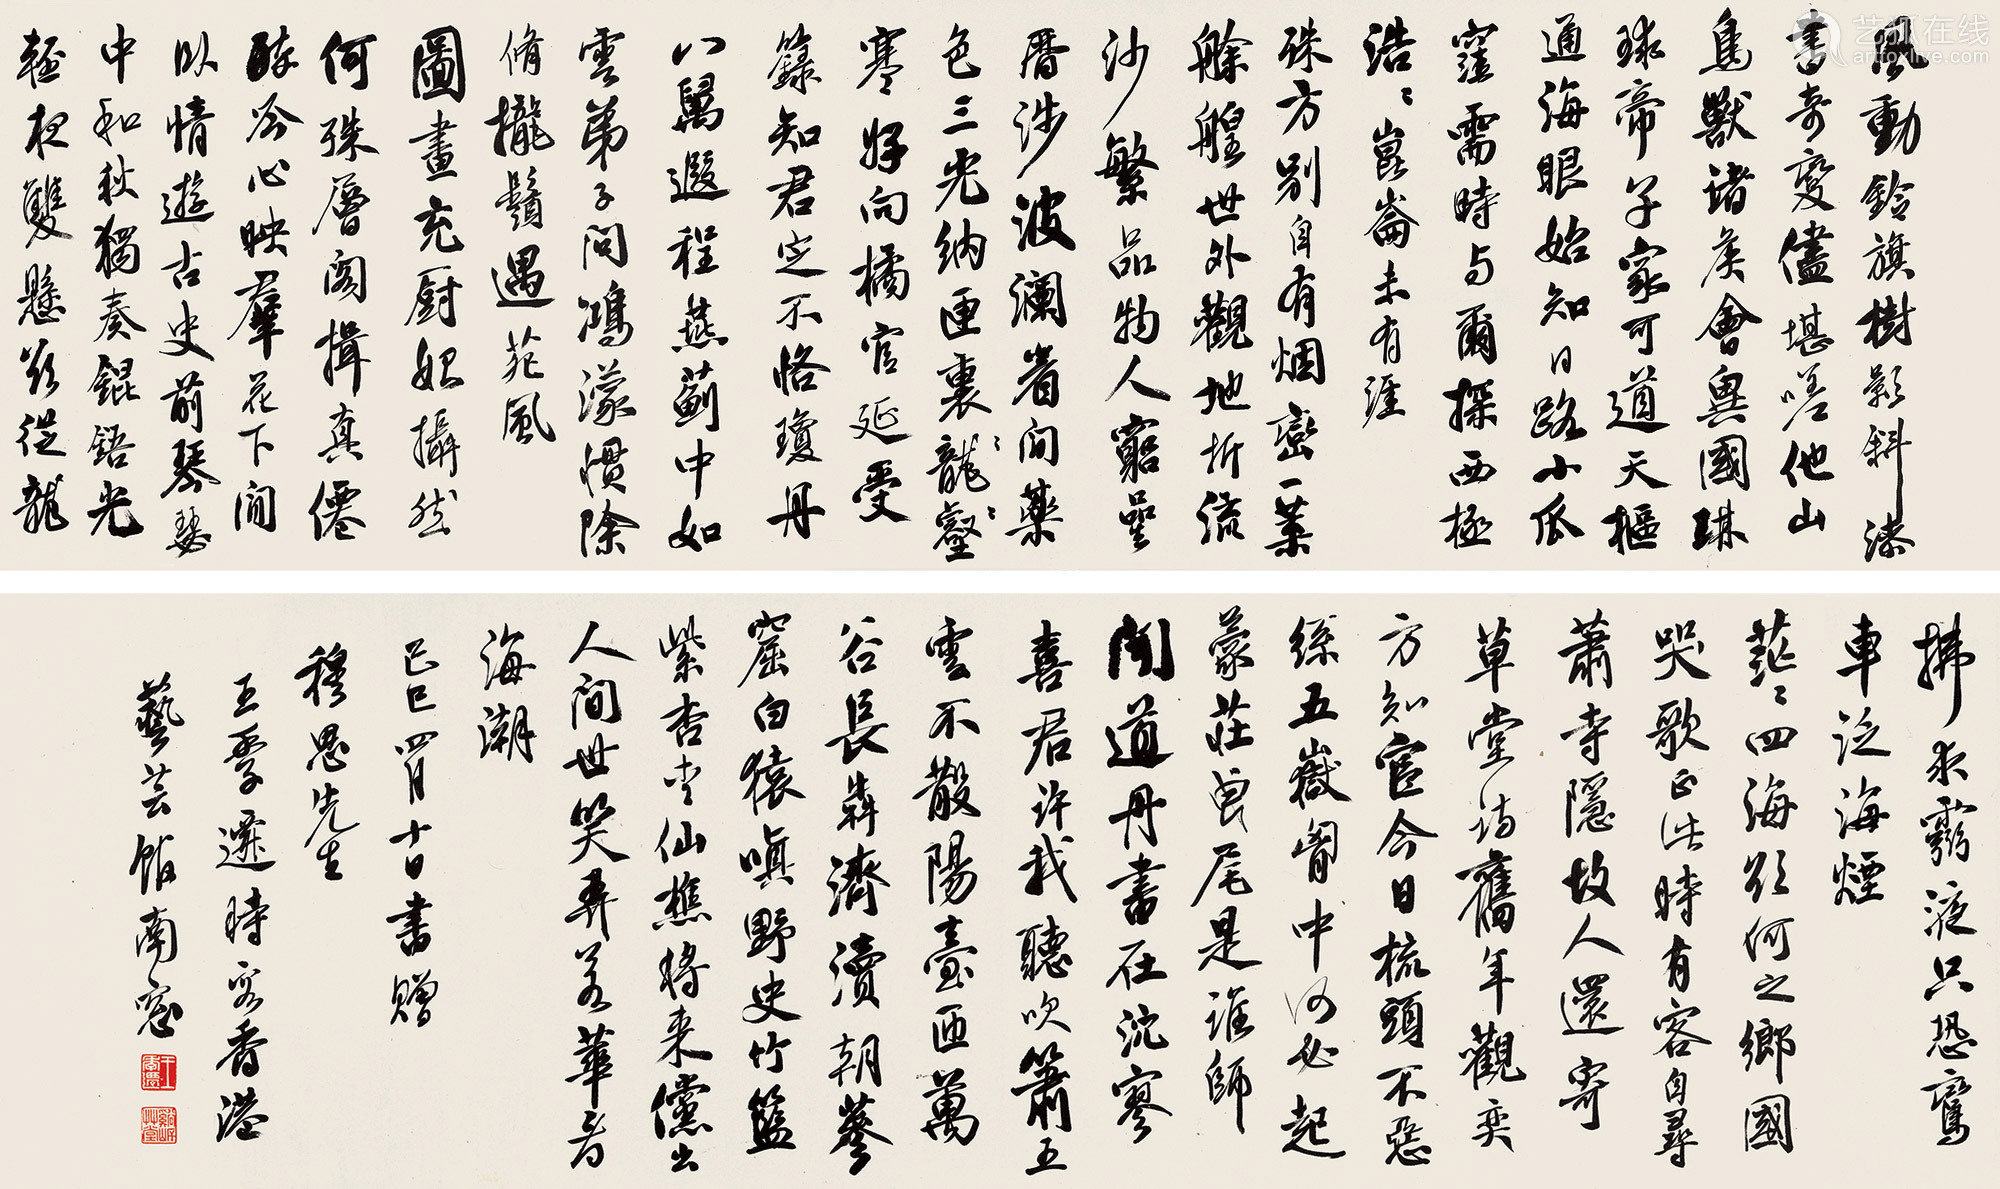 風動鈴旗樹影斜漆
書奇變儘堪嗟他山
鳥獸諸侯會異國琳
球帝子家可道天樞
通海眼始知日路小瓜
窪需時与爾探西極
浩〻崑崙未有涯
殊方別自有烟巒一葉
艅艎世外觀地折流
沙繁品物人窮星
曆涉波瀾眷間藥
色三光納匣裏龍〻壑〻
寒好向橘官延受
籙知君定不恪瓊丹
八萬遐程燕薊中如
雲弟子問鴻濛慣除
脩攏鬚遇苑風
圖畫充厨妲攝然
何殊層閣揖真僊
醉吟心映羣花下間
臥情遊古史前琴瑟
中和秋獨奏錕鋙光
輕夜雙懸欲從龍
拂永霧液只恐鸞
車泛海煙
茫〻四海欲何之鄉國
哭歌正此時有客自尋
蕭寺隱故人還寄
草堂詩舊年觀奕
方知官今日梳頭不惡
絲五嶽胸中何必起
蒙莊曳尾是誰師
聞道丹書在沈寥
喜君許我聽吹簫五
雲不散陽臺匝萬
谷長犇濟瀆朝蔘
窟白猿嗔野史竹籃
紫杏叱仙樵將來儻出
人間世笑弄若華看
海潮
己巳四月十日書贈
穆恩先生
王季遷時客香港
藝芸館南窓